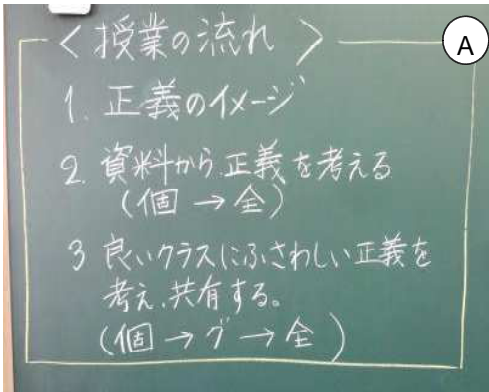 ＜授業の流れ＞
A
1. 正義のイメージ
2. 資料から正義を考える
（個→全）
3 良いクラスにふさわしい正義を
考え、共有する。
（個→グ→全）